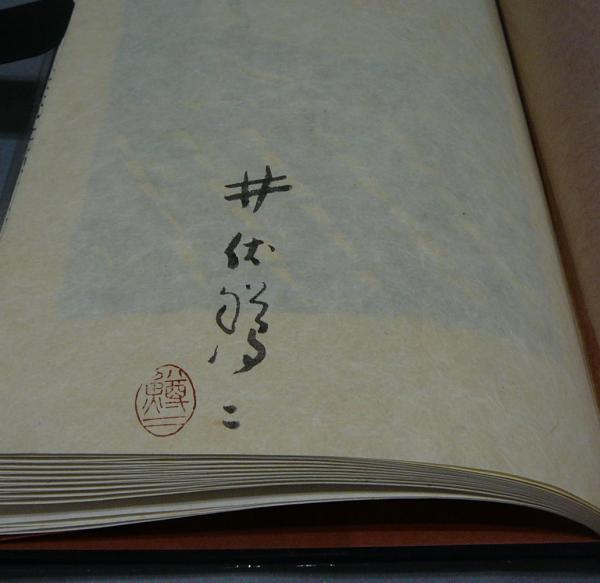 井伏鱒二
鱒二